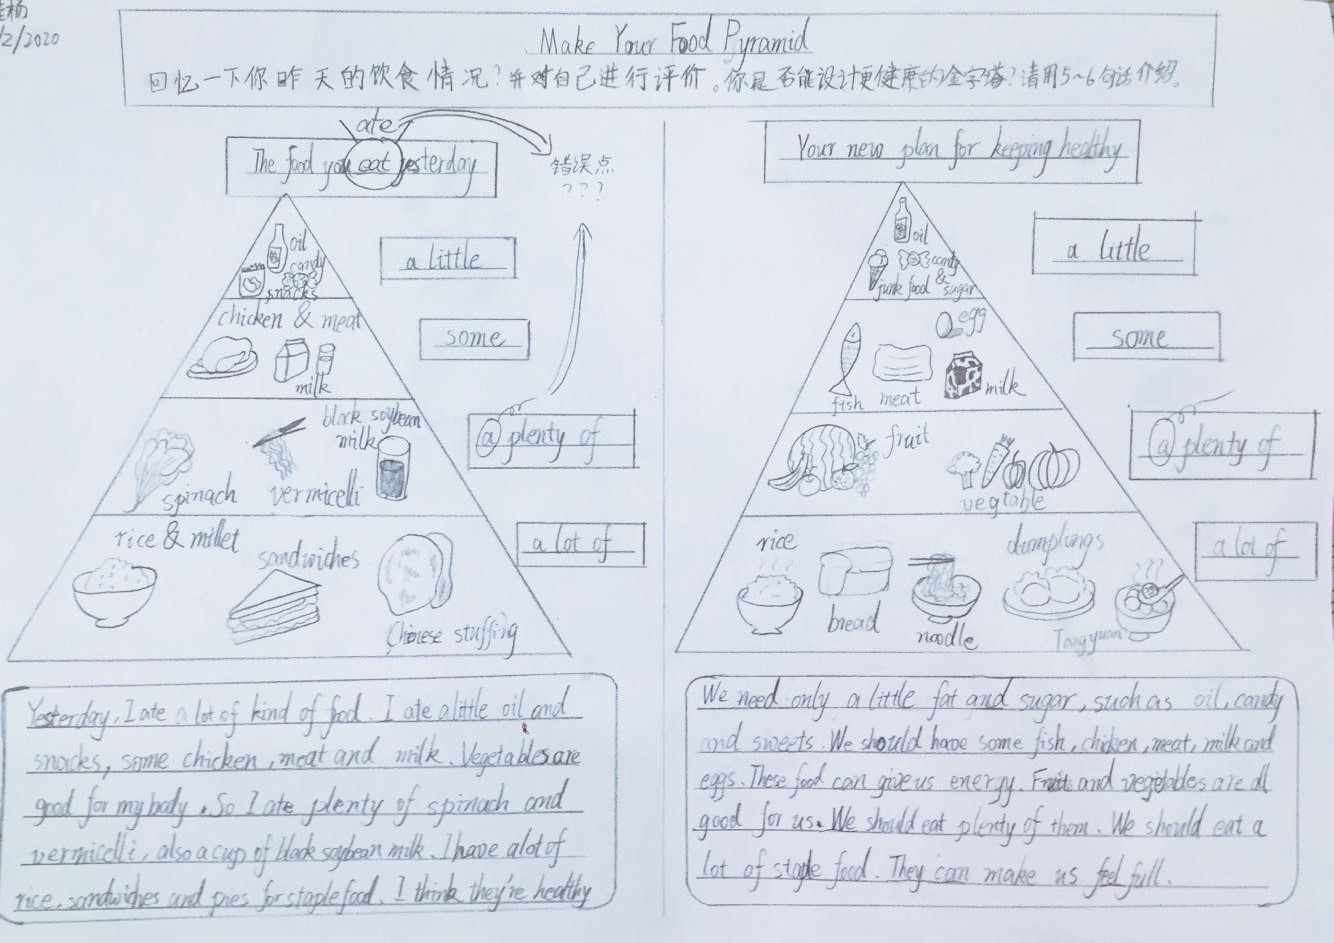 杨
/2/2020
Make Your Food Pyramid
回忆一下你昨天的饮食情况？并对自己进行评价。你是否能设计更健康的金字塔？请用5~6句话介绍。
ate
The food you eat yesterday
错误点
???
oil
candy
snacks
a little
chicken & meat
milk
some
black soybean
milk
spinach
vermicelli
a plenty of
rice & millet
sandwiches
Chinese stuffing
a lot of
Yesterday, I ate a lot of kind of food. I ate a little oil and
snacks, some chicken, meat and milk. Vegetables are
good for my body. So I ate plenty of spinach and
vermicelli, also a cup of black soybean milk. I have a lot of
rice, sandwiches and pies for staple food. I think they're healthy
Your new plan for keeping healthy
oil
candy
junk food & sugar
a little
egg
fish meat milk
some
fruit
vegtable
a plenty of
rice
bread
noodle
dumplings
Tangyuan
a lot of
We need only a little fat and sugar, such as oil, candy
and sweets. We should have some fish, chicken, meat, milk and
eggs. These food can give us energy. Fruits and vegetables are all
good for us. We should eat plenty of them. We should eat a
lot of staple food. They can make us feel full.